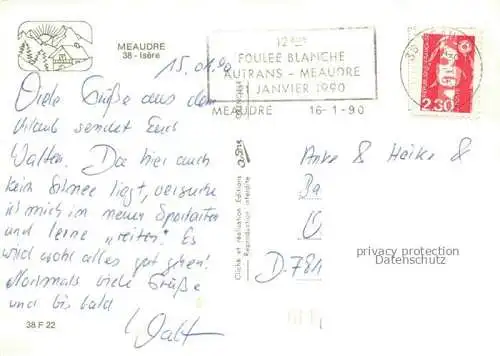 MEAUDRE
38 - Isère
12ème
FOULEE BLANCHE
AUTRANS - MEAUDRE
21 JANVIER 1990
MEAUDRE 16-1-90
2,30
15.01.90
Viele Grüße aus dem
Urlaub sendet Euch
Walter. Da hier auch
kein Schnee liegt, versuche
ich mich im neuen Sportarten
und lerne „reiten“! Es
wird wohl alles gut gehen!
Nochmals viele Grüße
und bis bald
Walt
38 F 22
Cliché et réalisation Editions
Reproduction interdite
Anke & Heike &
D-781
privacy protection
Datenschutz